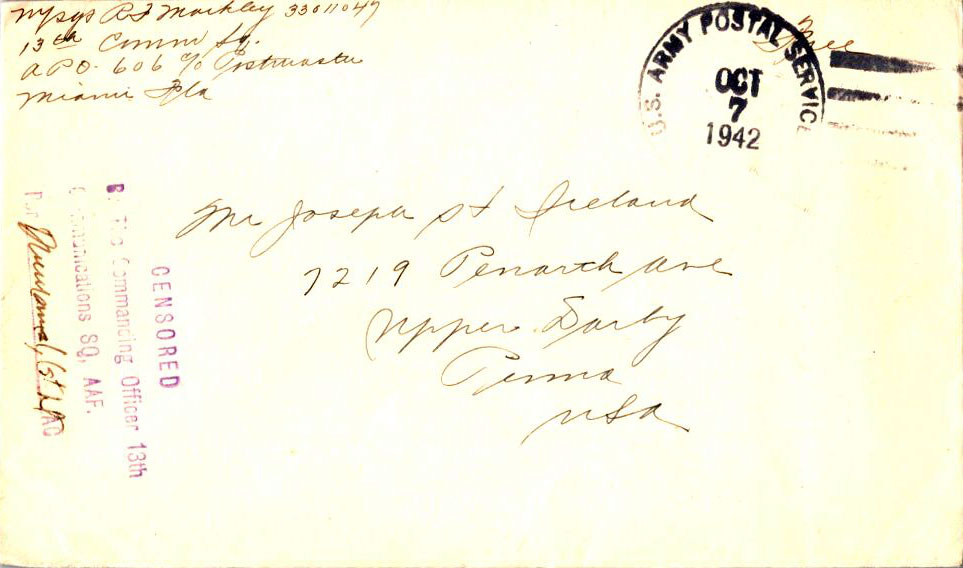 R J Markley 33011047
13th Comm Sq.
APO 606 c/o Postmaster
Miami Fla
Free
U.S. ARMY POSTAL SERVICE
OCT
7
1942
Mr Joseph St Ireland
7219 Penarth Ave
Upper Darby
Penna
USA
CENSORED
By The Commanding Officer 13th
Communications SQ, AAF.
Por